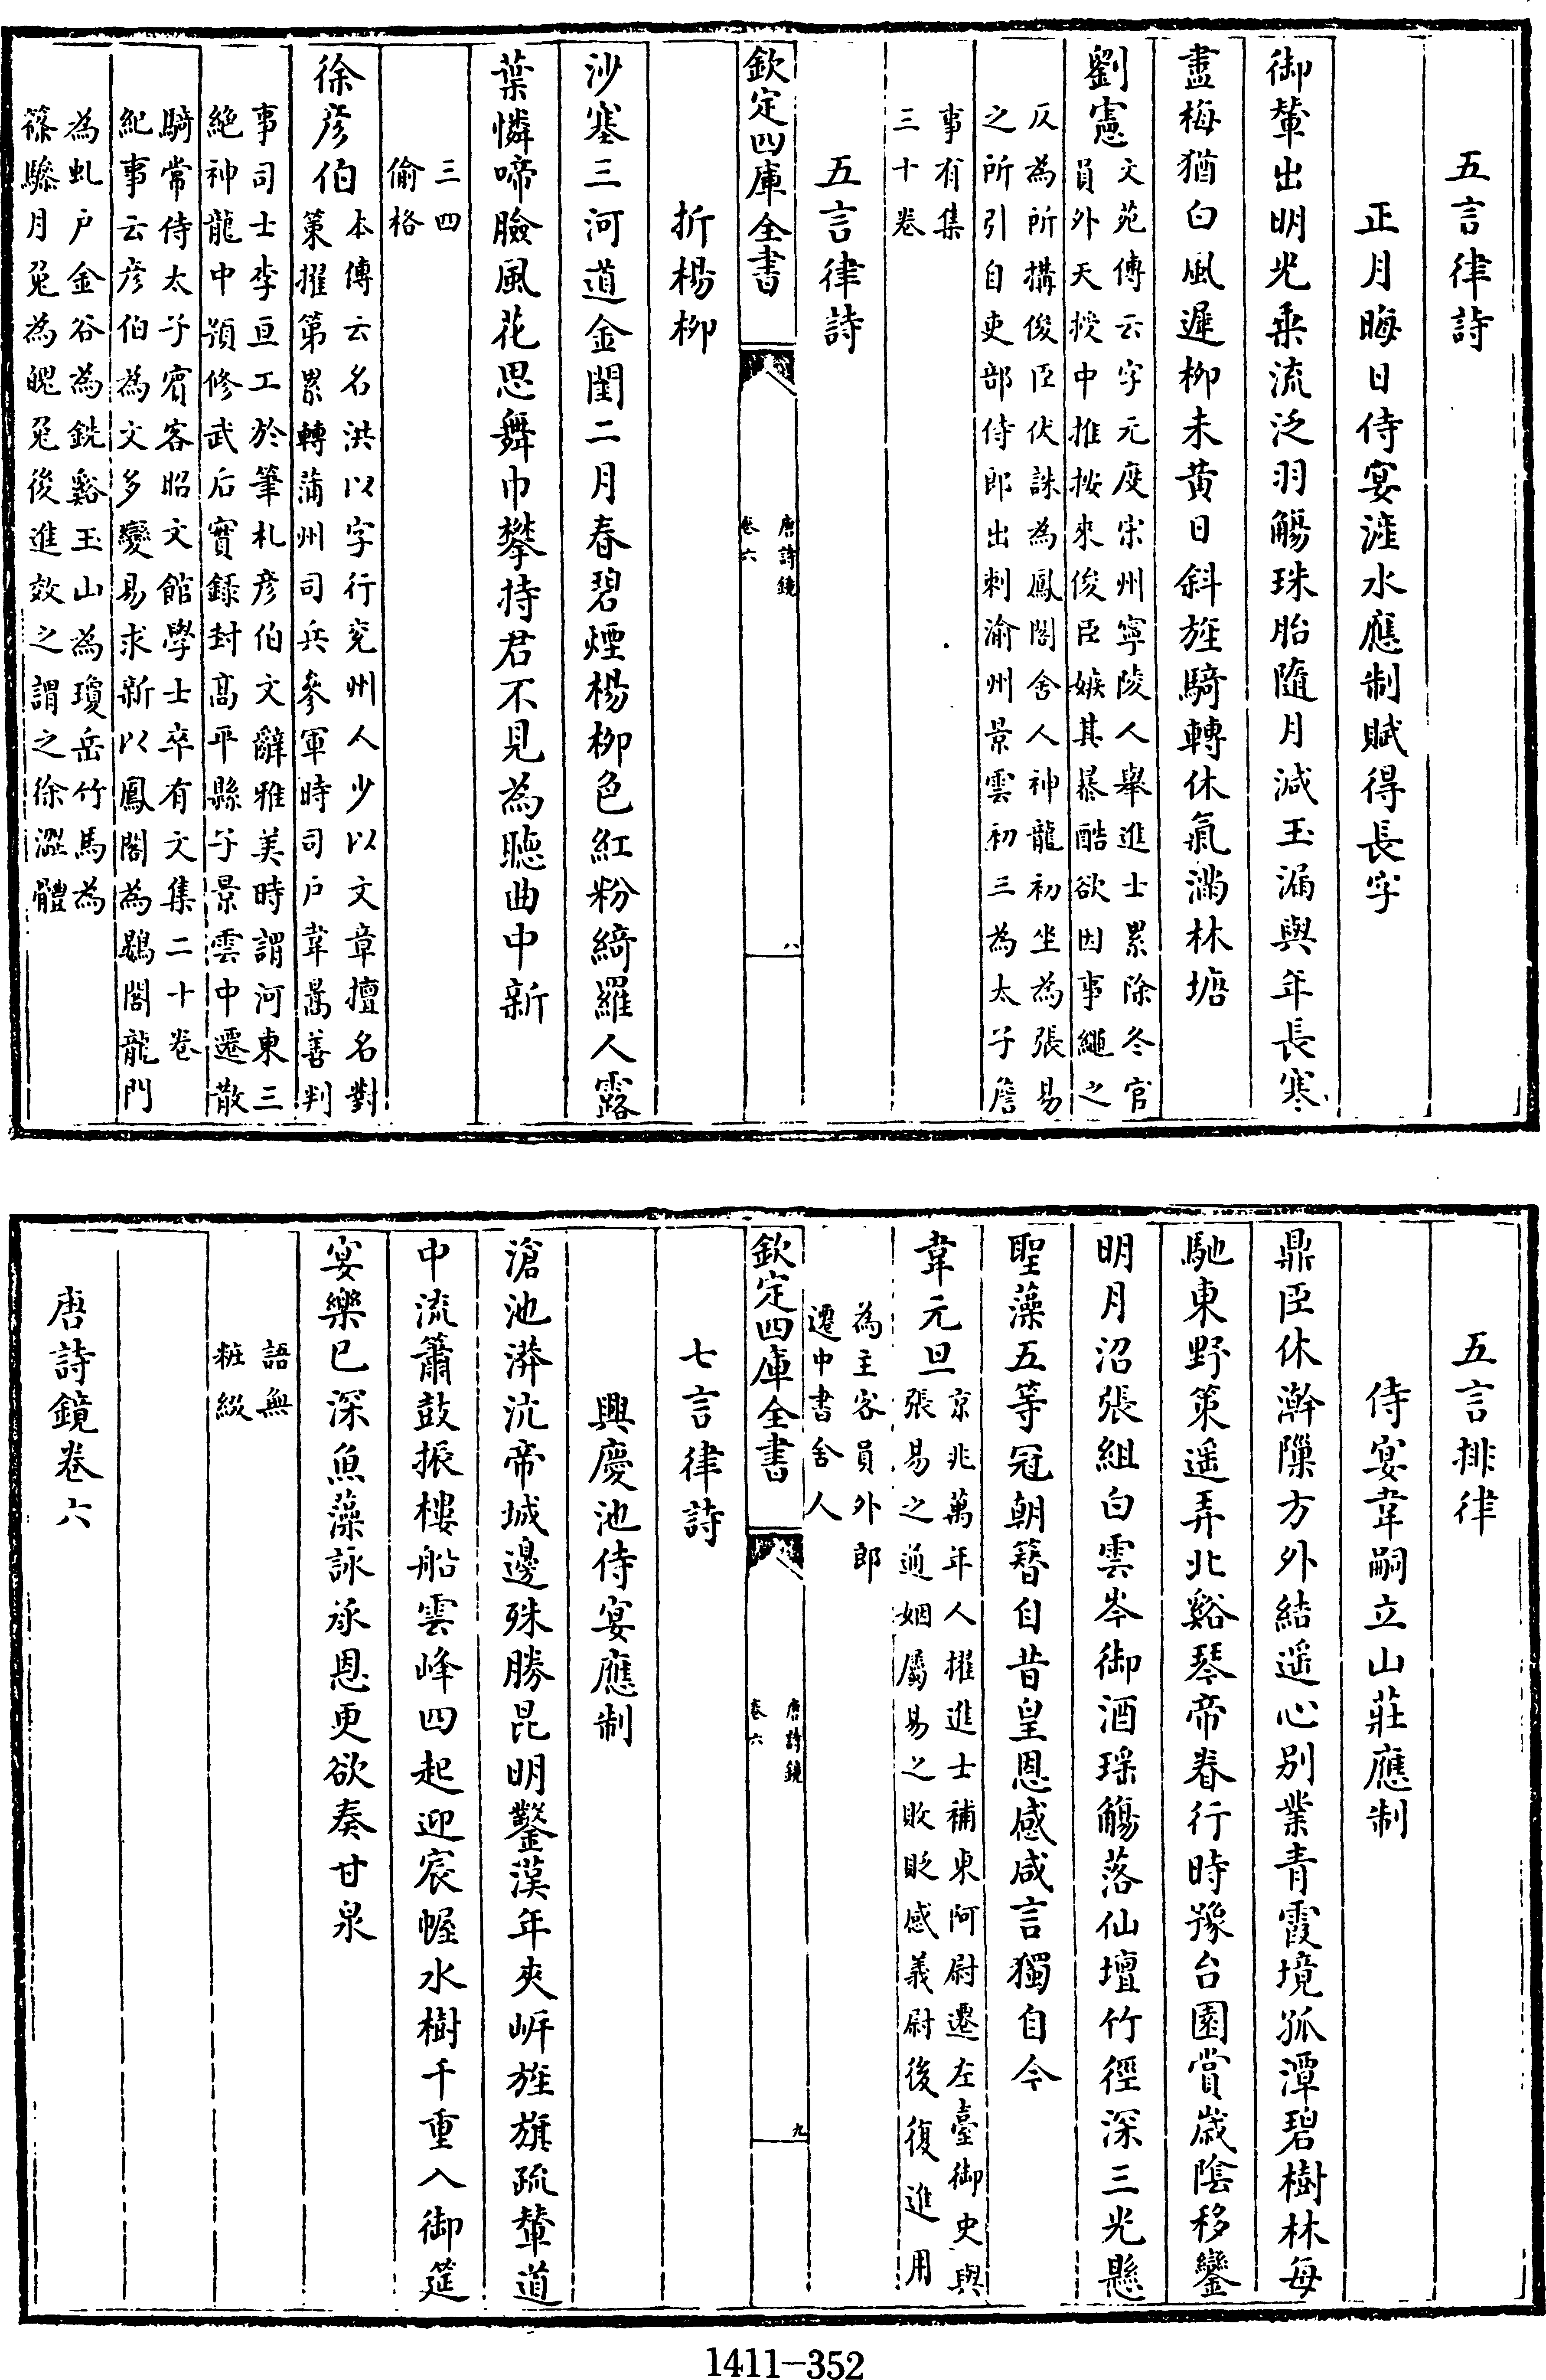 五言律詩
正月晦日侍宴滻水應制賦得長字
御輦出明光乘流泛羽觴珠胎隨月減玉漏與年長寒
盡梅猶白風遲柳未黄日斜旌騎轉休氣滿林塘
劉憲文苑傳云字元度宋州寧陵人舉進士累除冬官
員外天授中推按來俊臣嫉其暴酷欲因事繩之
反為所搆俊臣伏誅為鳳閣舍人神龍初坐為張易
之所引自吏部侍郎出刺渝州景雲初三為太子詹
事有集
三十卷
五言律詩
欽定四庫全書
唐詩鏡
卷六
八
折楊柳
沙塞三河道金閨二月春碧煙楊柳色紅粉綺羅人露
葉憐啼臉風花思舞巾攀持君不見為聽曲中新
三四
偷格
徐彦伯本傳云名洪以字行兖州人少以文章擅名對
策擢第累轉蒲州司兵參軍時司户韋暠善判
事司士李亘工於筆札彦伯文辭雅美時謂河東三
絶神龍中預修武后實録封高平縣子景雲中遷散
騎常侍太子賓客昭文館學士卒有文集二十卷
紀事云彦伯為文多變易求新以鳳閣為鶠閣龍門
為虬户金谷為銑谿玉山為瓊岳竹馬為
篠驂月兔為魄兔後進效之謂之徐澀體
五言排律
侍宴韋嗣立山莊應制
鼎臣休澣隟方外結遥心别業青霞境孤潭碧樹林每
馳東野策遥弄北谿琴帝眷行時豫台園賞歲陰移鑾
明月沼張組白雲岑御酒瑶觴落仙壇竹徑深三光懸
聖藻五等冠朝簪自昔皇恩感咸言獨自今
韋元旦京兆萬年人擢進士補東阿尉遷左臺御史與
張易之通姻屬易之敗貶感義尉後復進用
為主客員外郎
遷中書舍人
欽定四庫全書
唐詩鏡
卷六
九
七言律詩
興慶池侍宴應制
滄池漭沆帝城邊殊勝昆明鑿漢年夾岍旌旗疏輦道
中流簫鼓振樓船雲峰四起迎宸幄水樹千重入御筵
宴樂已深魚藻詠承恩更欲奏甘泉
語無
粧綴
唐詩鏡卷六
1411-352